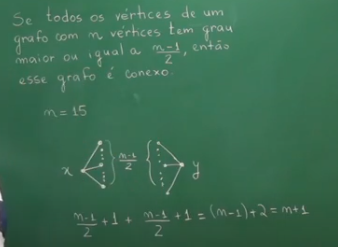 Se todos os vértices de um
grafo com n vértices tem grau
maior ou igual a (n-1)/2, então
esse grafo é conexo.
n = 15
x } (n-1)/2 (n-1)/2 { y
(n-1)/2 + 1 + (n-1)/2 + 1 = (n-1) + 2 = n+1